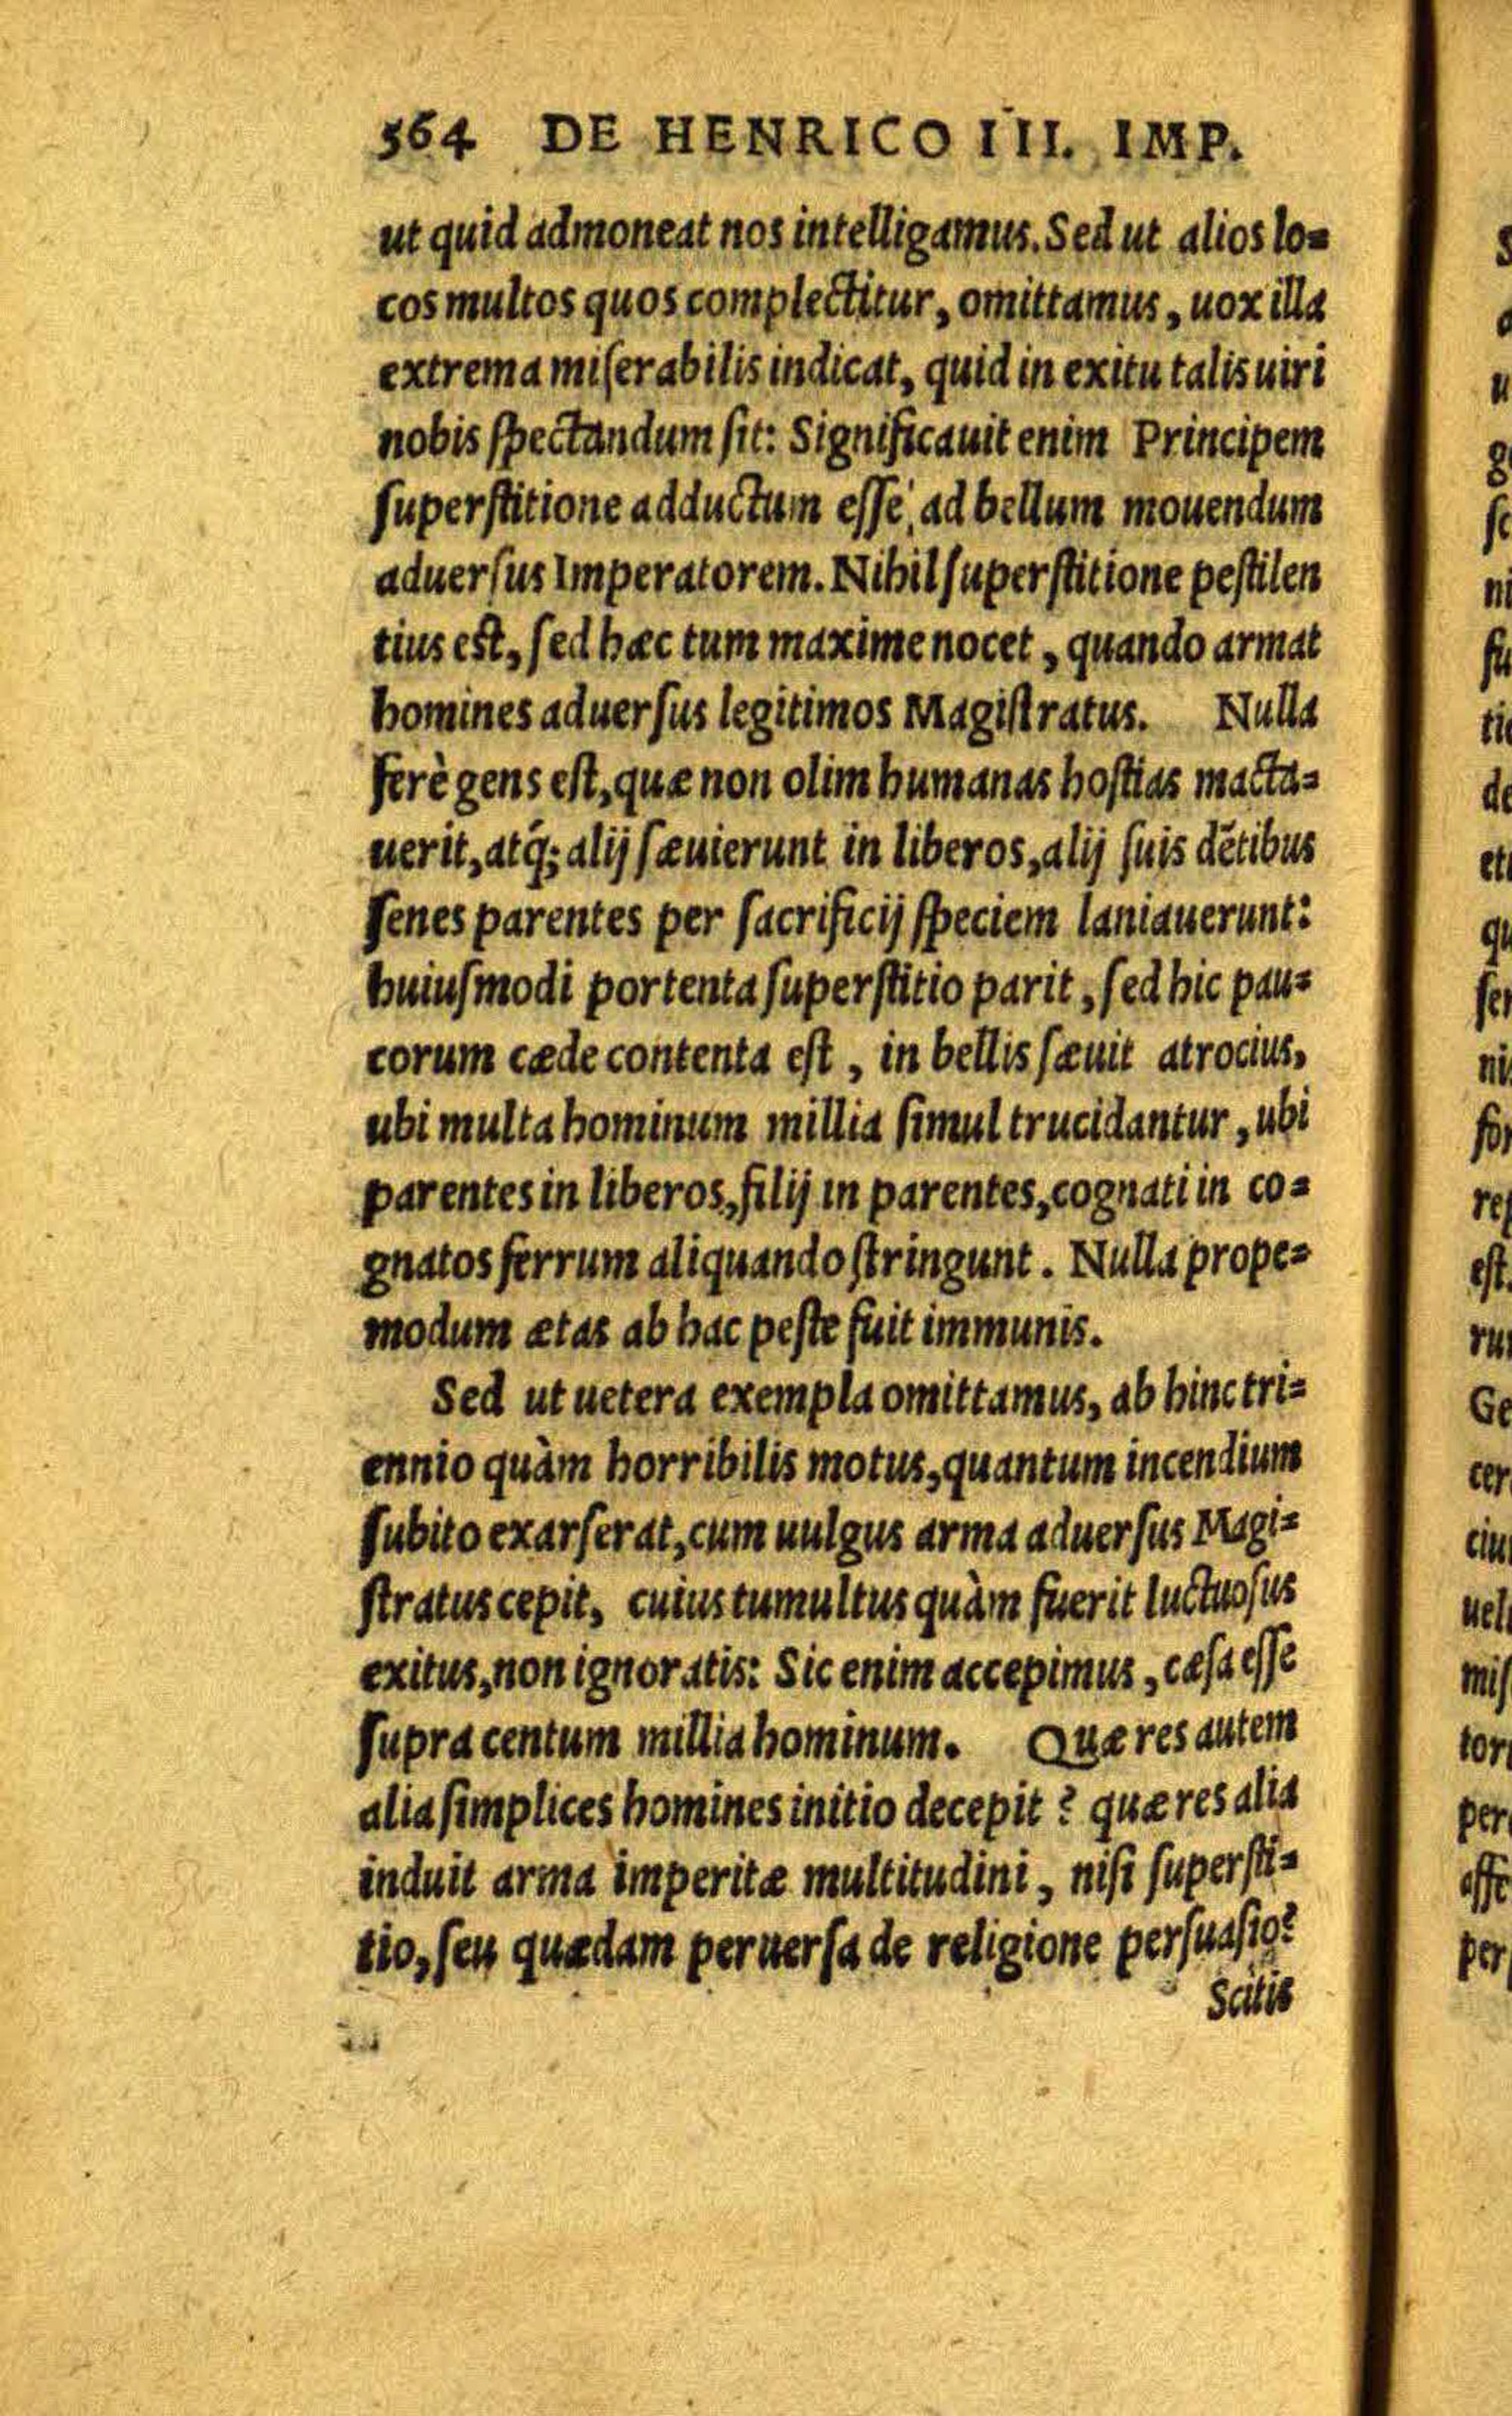 564 DE HENRICO III. IMP.
ut quid admoneat nos intelligamus. Sed ut alios lo=
cos multos quos complectitur, omittamus, uox illa
extrema miſerabilis indicat, quid in exitu talis uiri
nobis ſpectandum ſit: Significauit enim Principem
ſuperſtitione adductum eſſe ad bellum mouendum
aduerſus Imperatorem. Nihil ſuperſtitione peſtilen
tius eſt, ſed hæc tum maxime nocet, quando armat
homines aduerſus legitimos Magiſtratus. Nulla
ferè gens eſt, quæ non olim humanas hoſtias macta=
uerit, atq́; alij ſæuierunt in liberos, alij ſuis dẽtibus
ſenes parentes per ſacrificij ſpeciem laniauerunt:
huiuſmodi portenta ſuperſtitio parit, ſed hic pau=
corum cæde contenta eſt, in bellis ſæuit atrocius,
ubi multa hominum millia ſimul trucidantur, ubi
parentes in liberos, filij in parentes, cognati in co=
gnatos ferrum aliquando ſtringunt. Nulla prope=
modum ætas ab hac peſte fuit immunis.
Sed ut uetera exempla omittamus, ab hinc tri=
ennio quàm horribilis motus, quantum incendium
ſubito exarſerat, cum uulgus arma aduerſus Magi=
ſtratus cepit, cuius tumultus quàm fuerit luctuoſus
exitus, non ignoratis: Sic enim accepimus, cæſa eſſe
ſupra centum millia hominum. Quæ res autem
alia ſimplices homines initio decepit? quæ res alia
induit arma imperitæ multitudini, niſi ſuperſti=
tio, ſeu quædam peruerſa de religione perſuaſio?
Scitis